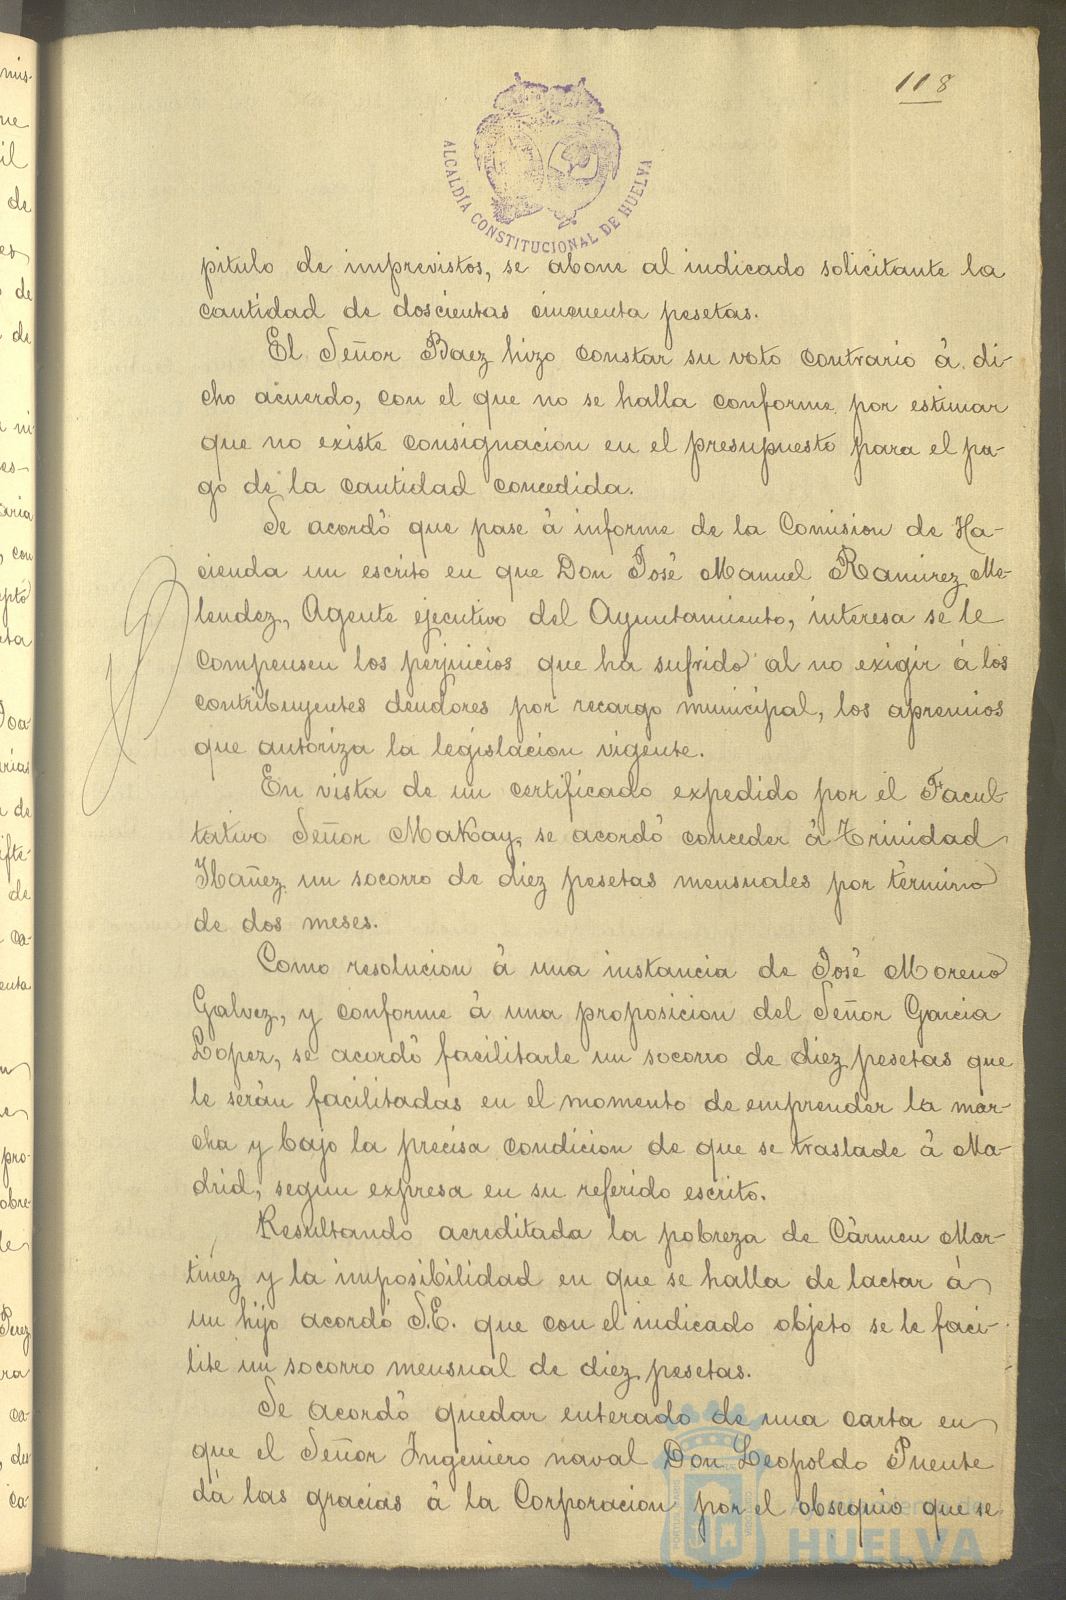 118
ALCALDÍA CONSTITUCIONAL DE HUELVA
pitulo de imprevistos, se abone al indicado solicitante la
cantidad de doscientas cincuenta pesetas.
El Señor Baez hizo constar su voto contrario á di-
cho acuerdo, con el que no se halla conforme por estimar
que no existe consignacion en el presupuesto para el pa-
go de la cantidad concedida.
Se acordó que pase á informe de la Comision de Ha-
cienda un escrito en que Don José Manuel Ramirez Me-
lendez, Agente ejecutivo del Ayuntamiento, interesa se le
compensen los perjuicios que ha sufrido al no exigir á los
contribuyentes deudores por recargo municipal, los apremios
que autoriza la legislacion vigente.
En vista de un certificado expedido por el Facul-
tativo Señor MaKay, se acordó conceder á Trinidad
Ibañez un socorro de diez pesetas mensuales por término
de dos meses.
Como resolucion á una instancia de José Moreno
Galvez, y conforme á una proposicion del Señor Garcia
Lopez, se acordó facilitarle un socorro de diez pesetas que
le serán facilitadas en el momento de emprender la mar-
cha y bajo la precisa condicion de que se traslade á Ma-
drid, segun expresa en su referido escrito.
Resultando acreditada la pobreza de Cármen Mar-
tinez y la imposibilidad en que se halla de lactar á
un hijo acordó S.E. que con el indicado objeto se le faci-
lite un socorro mensual de diez pesetas.
Se acordó quedar enterado de una carta en
que el Señor Ingeniero naval Don Leopoldo Puente
dá las gracias á la Corporacion por el obsequio que se
Ayuntamiento de
HUELVA